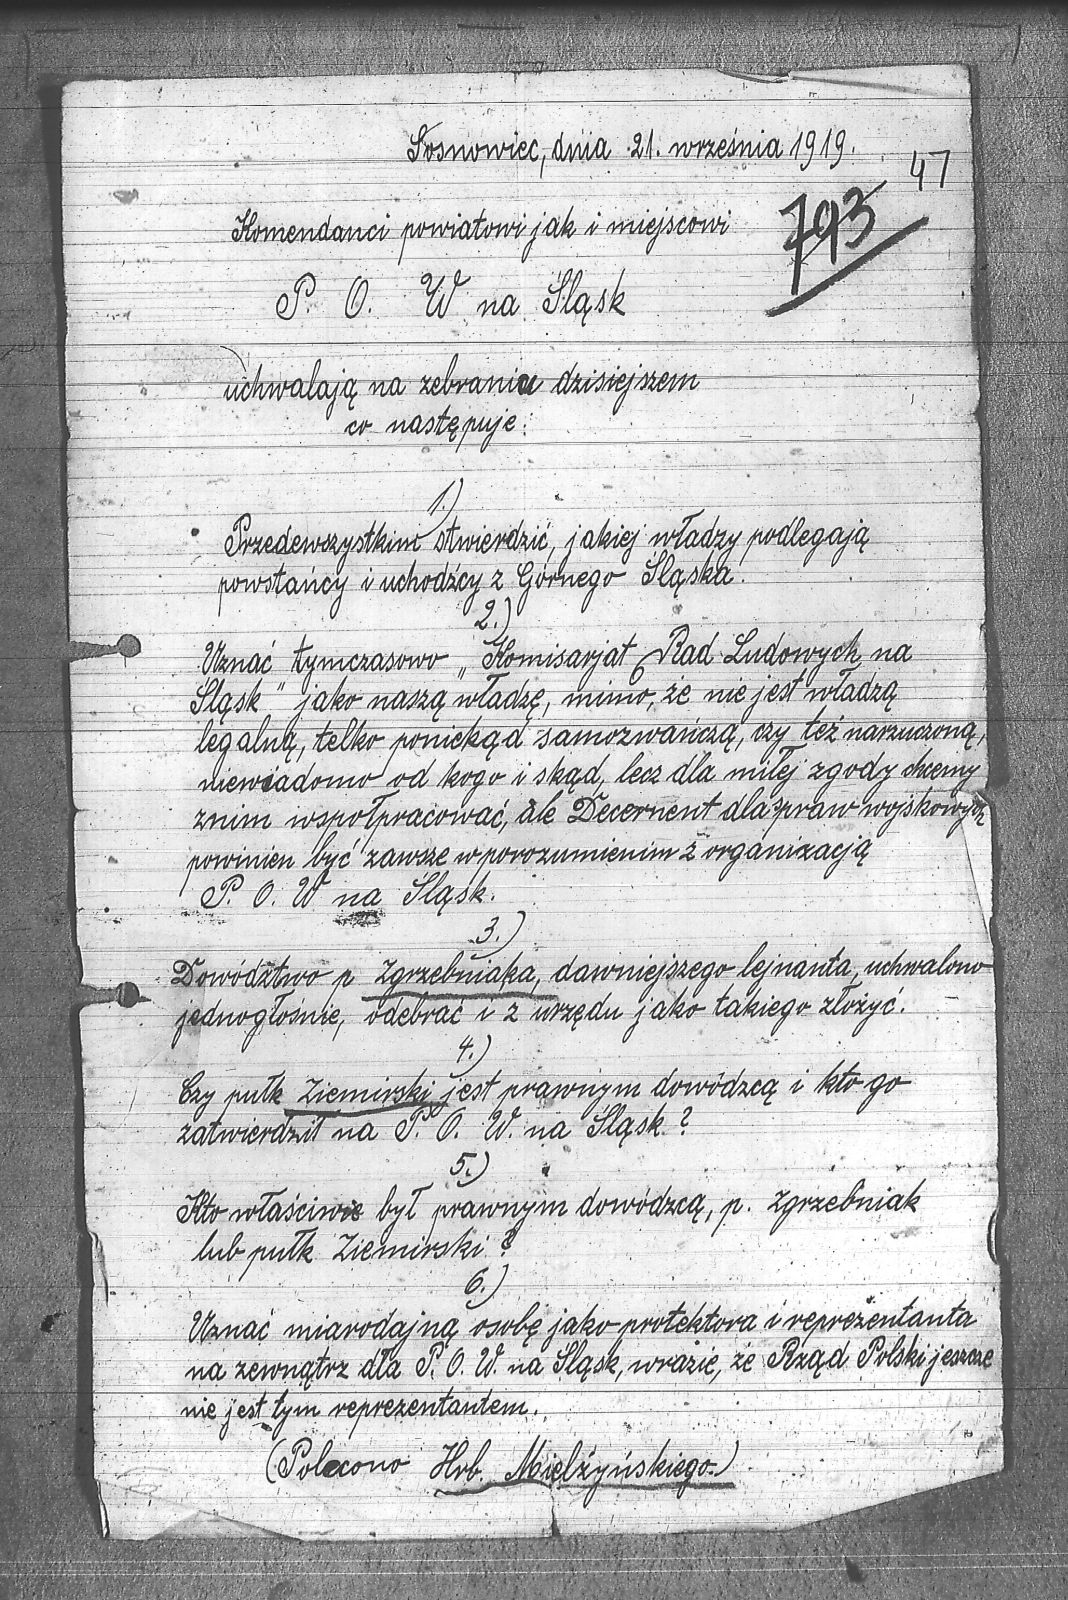 Sosnowiec, dnia 21. września 1919.
47
793
Komendanci powiatowi jak i miejscowi
P. O. W na Śląsk
uchwalają na zebraniu dzisiejszem
co następuje:
1.)
Przedewszystkim stwierdzić, jakiej władzy podlegają
powstańcy i uchodźcy z Górnego Śląska.
2.)
Uznać tymczasowo „Komisarjat Rad Ludowych na
Śląsk" jako naszą władzę, mimo, że nie jest władzą
legalną, telko poniekąd samozwańczą, czy też narzuczoną,
niewiadomo od kogo i skąd, lecz dla miłej zgody chcemy
znim wspołpracować, ale Decernent dla spraw wojskowych
powinien być zawsze w porozumienim z organizacją
P. O. W na Śląsk.
3.)
Dowództwo p Zgrzebniaka, dawniejszego lejnanta, uchwalono
jednogłośnie, odebrać i z urzędu jako takiego złożyć.
4.)
Czy pułk Ziemirski jest prawnym dowódzcą i kto go
zatwierdził na P. O. W. na Śląsk?
5.)
Kto właściwie był prawnym dowódzcą, p. Zgrzebniak
lub pułk Ziemirski?
6.)
Uznać miarodajną osobę jako protektora i reprezentanta
na zewnątrz dla P. O. W. na Śląsk, wrazie, że Rząd Polski jeszcze
nie jest tym reprezentantem.
(Polecono Hrb. Mielżyńskiego.)